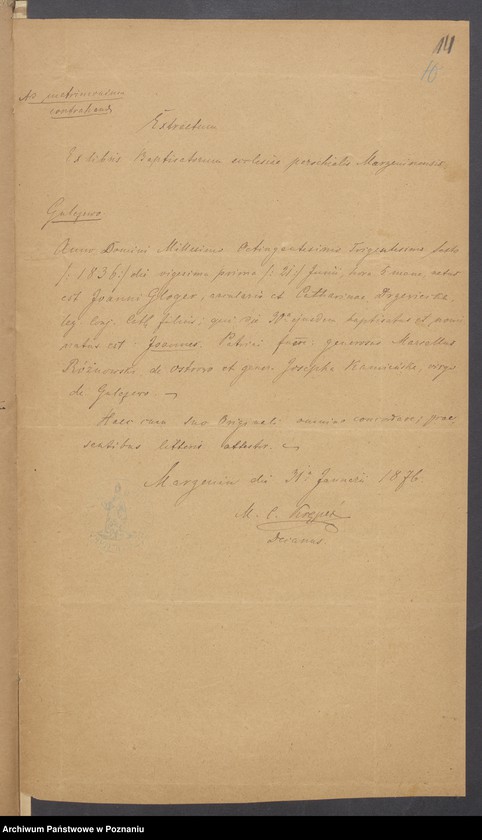 14
10
Ad matrimonium
contrahend.
Extractum
Ex libris Baptisatorum ecclesiae parochialis Margoninensis
Gołaszewo
Anno Domini Millesimo Octingentesimo Trigentesimo Sexto
/: 1836 :/ die vigesima prima /: 21 :/ Junii, hora mane, natus
est Joanni Gloger, et Catharinae
leg. conj. cath. filius; qui die 30ª ejusdem baptisatus et nomi-
natus est: Joannes. Patrini fuere: generosus Marcellus
Różnowski de et gener. Josepha Kamieńska, virgo
de
Haec cum suo Originali omnino concordare, prae-
sentibus litteris attestor.
Margonin die 31ª Januarii 1876.
M. C.
Decanus.
Archiwum Państwowe w Poznaniu